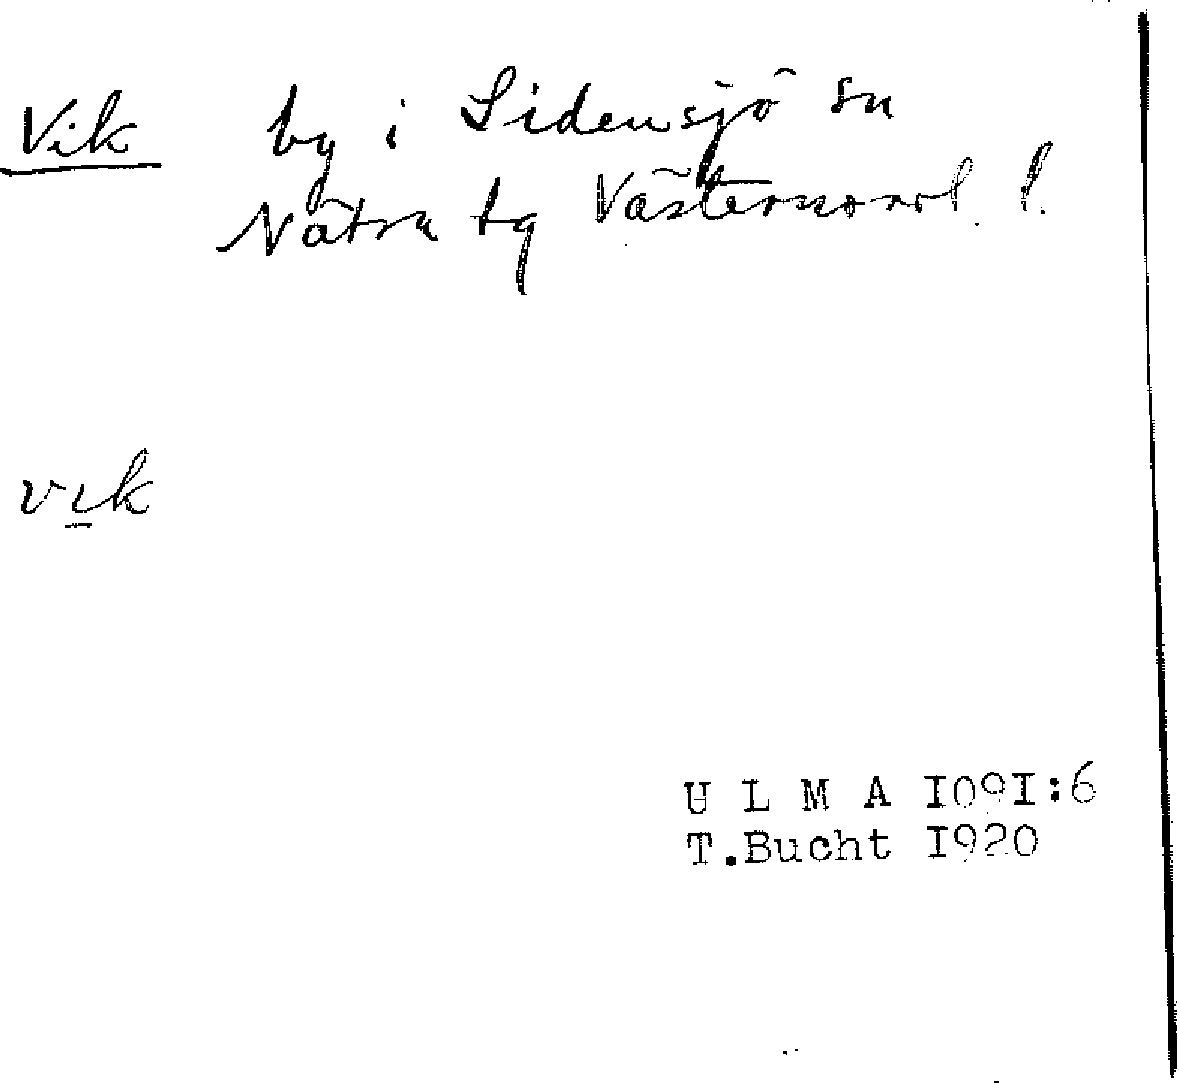 Vik by i Sidensjö sn
Nätra tg Västernorrl. l.
vik
U L M A I09I:6
T.Bucht I920